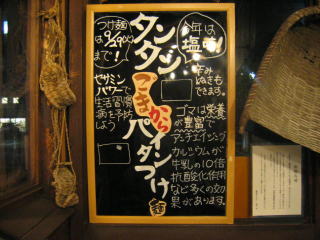 今年は
塩
タンタン
ごまから
パイタンつけ
麺
つけ麺
は9/29(火)
まで!
辛み
ぬきも
できます。
セサミン
パワーで
生活習慣
病を予防
しよう
ゴマは栄養
が豊富で
アンチエイジング
カルシウムが
牛乳の10倍
抗酸化作用
など多くの効
果があります。